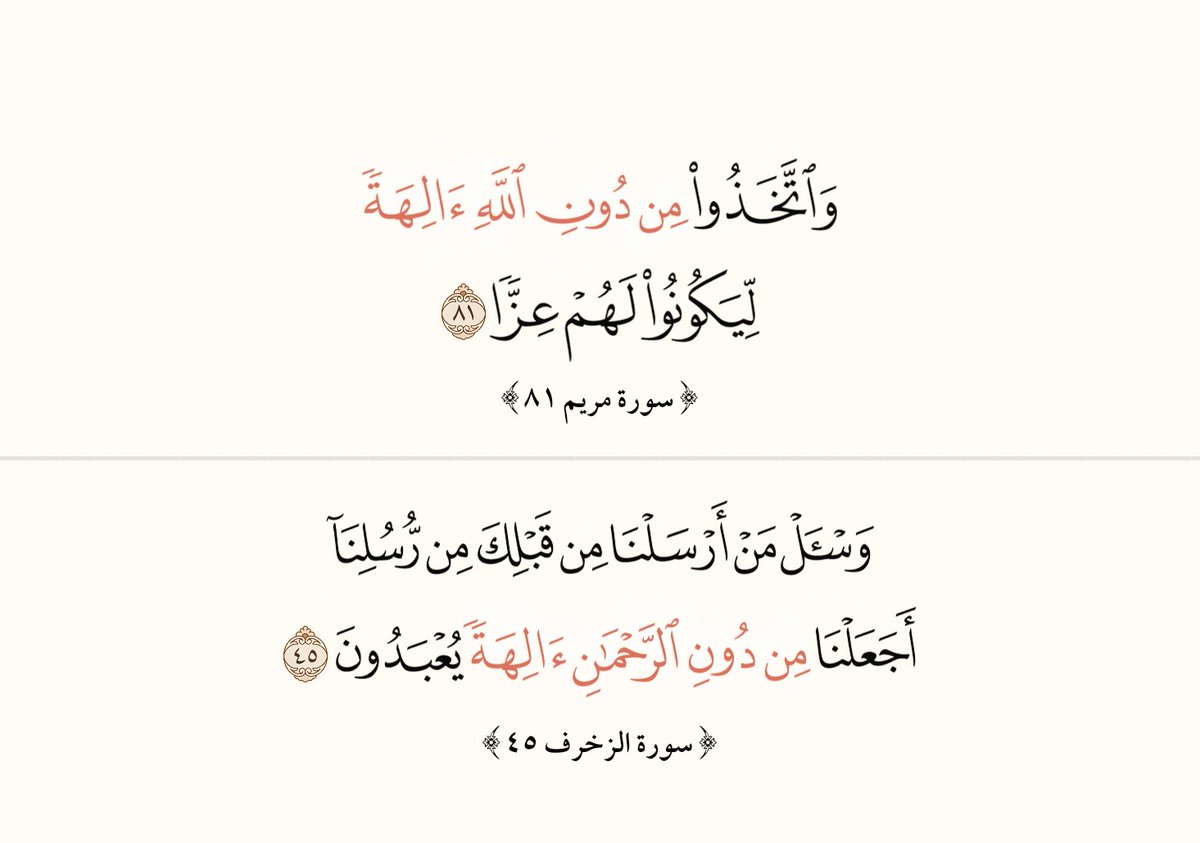 وَٱتَّخَذُوا۟ مِن دُونِ ٱللَّهِ ءَالِهَةً
لِّيَكُونُوا۟ لَهُمْ عِزًّا ٨١
﴿سورة مريم ٨١﴾
وَسْـَٔلْ مَنْ أَرْسَلْنَا مِن قَبْلِكَ مِن رُّسُلِنَآ
أَجَعَلْنَا مِن دُونِ ٱلرَّحْمَـٰنِ ءَالِهَةً يُعْبَدُونَ ٤٥
﴿سورة الزخرف ٤٥﴾